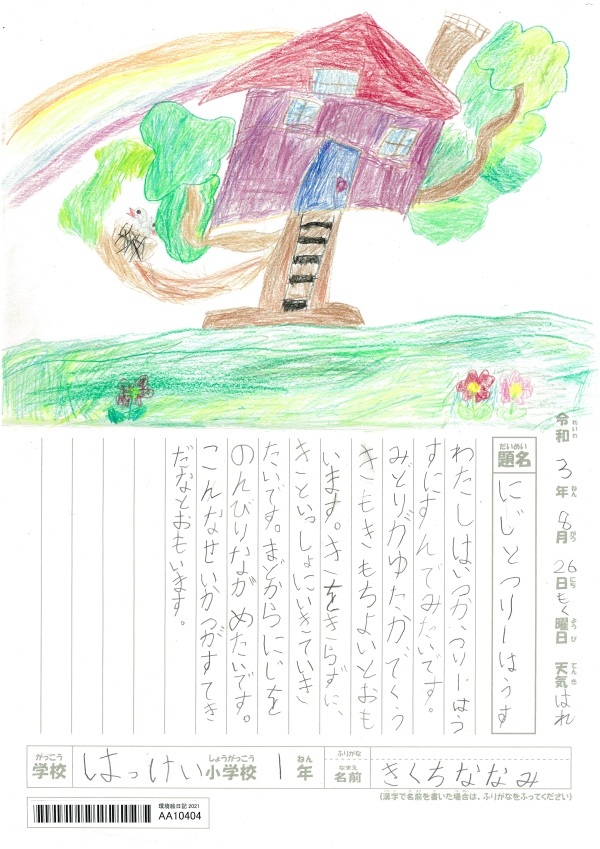 令和3年8月26日もく曜日 天気はれ
れいわ ねん がつ にち ようび てんき
だいめい
題名
にじとつりーはうす
わたしはいつか、つりーはう
すにすんでみたいです。
みどりがゆたかで、くう
きもきもちよいとおも
います。きをきらずに、
きといっしょにいきていき
たいです。まどからにじを
のんびりながめたいです。
こんなせいかつがすてき
だなとおもいます。
がっこう しょうがっこう ねん
学校 はっけい小学校 1年
ふりがな
なまえ
名前 きくちななみ
(漢字で名前を書いた場合は、ふりがなをふってください)
環境絵日記 2021
AA10404